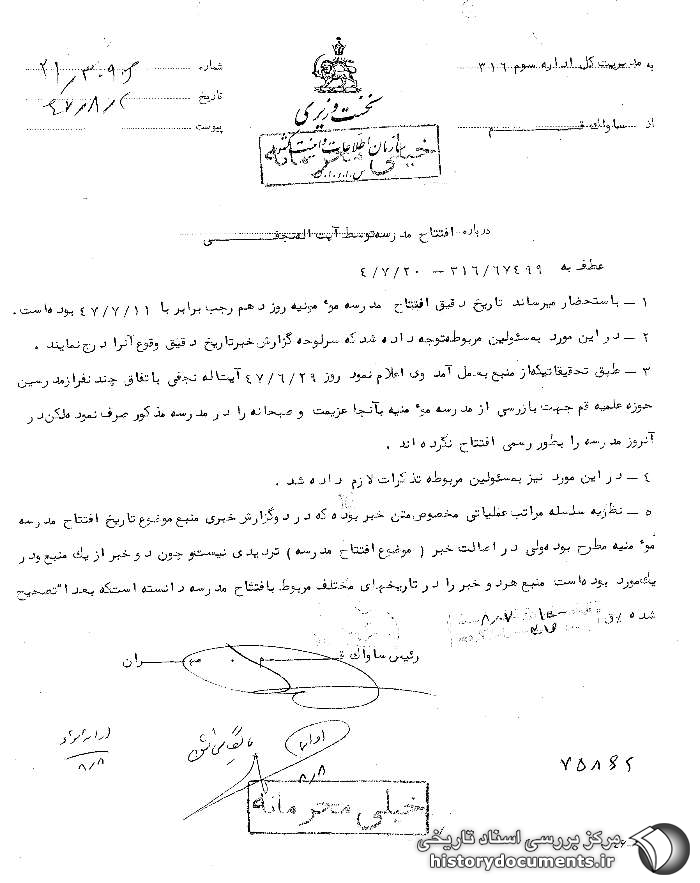 به مدیریت کل اداره سوم ۳۱۶
از ساواک قم
نخست وزیری
سازمان اطلاعات و امنیت کشور
س.ا.و.ا.ک
شماره
تاریخ ۴۷/۸/۲
پیوست
درباره افتتاح مدرسه توسط آیت اله نجفی
عطف به ۳۱۶/۶۷۴۹۹ – ۴/۷/۲۰
۱ – باستحضار میرساند تاریخ دقیق افتتاح مدرسه موٴمنیه روز دهم رجب برابر با ۴۷/۷/۱۱ بوده است .
۲ – در این مورد بمسئولین مربوطه توجه داده شد که سرلوحه گزارش خبر تاریخ دقیق وقوع آنرا درج نمایند .
۳ – طبق تحقیقاتیکه از منبع بعمل آمد وی اعلام نمود روز ۴۷/۶/۲۹ آیت اله نجفی باتفاق چند نفر از مدرسین
حوزه علمیه قم جهت بازرسی از مدرسه موٴمنیه بآنجا عزیمت و صبحانه را در مدرسه مذکور صرف نموده لکن در
آنروز مدرسه را بطور رسمی افتتاح نگرده اند .
۴ – در این مورد نیز بمسئولین مربوطه تذکرات لازم داده شد .
۵ – نظریه سلسله مراتب عملیاتی مخصوص متن خبر بوده که در دو گزارش خبری منبع موضوع تاریخ افتتاح مدرسه
موٴمنیه مطرح بوده ولی در اصالت خبر ( موضوع افتتاح مدرسه ) تردیدی نیست و چون دو خبر از یک منبع و در
یک مورد بوده است منبع هر دو خبر را در تاریخهای مختلف مربوط بافتتاح مدرسه دانسته است که بعدا" تصحیح
شده
رئیس ساواک قم . مهران
۸/۸
۸/۸
۷۵۸۸۶
خیلی محرمانه
مرکز بررسی اسناد تاریخی
historydocuments.ir